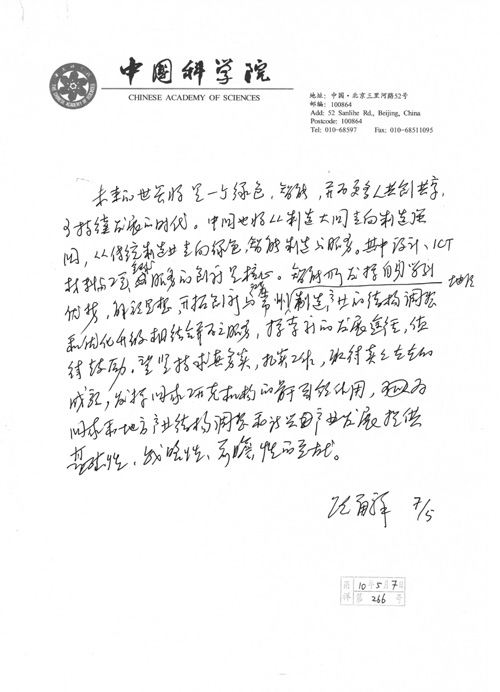 中国科学院
CHINESE ACADEMY OF SCIENCES
地址：中国·北京三里河路52号
邮编：100864
Add: 52 Sanlihe Rd., Beijing, China
Postcode: 100864
Tel: 010-68597 Fax: 010-68511095
未来的世界将是一个绿色，智能，共创共享，
可持续发展的时代。中国也将从制造大国走向制造强
国，从传统制造业走向绿色，智能制造与服务。其中设计、ICT
材料与工艺 服务的创新是核心。智能所发挥自身
优势，解放思想，开拓创新与常州制造产业的结构调整
和优化升级相结合 服务，探索新的发展途径，值
得鼓励。望坚持求真务实，扎实工作，取得 的
成就，发挥国家研究机构的 引领作用，
国家和地方产业结构调整和新兴产业发展提供
基础性，战略性、前瞻性的贡献。
路甬祥 7/5
10年5月7日
第 266 号